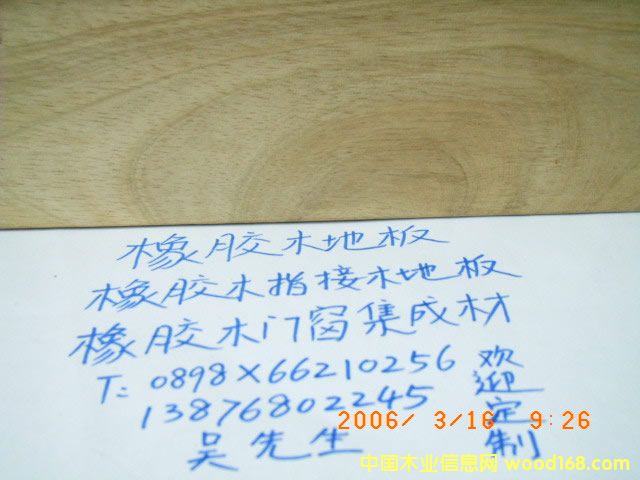 橡胶木地板
橡胶木指接木地板
橡胶木门窗集成材
T: 0898×66210256
13876802245
吴先生
欢迎定制
2006/ 3/16 9:26
中国木业信息网 wood168.com